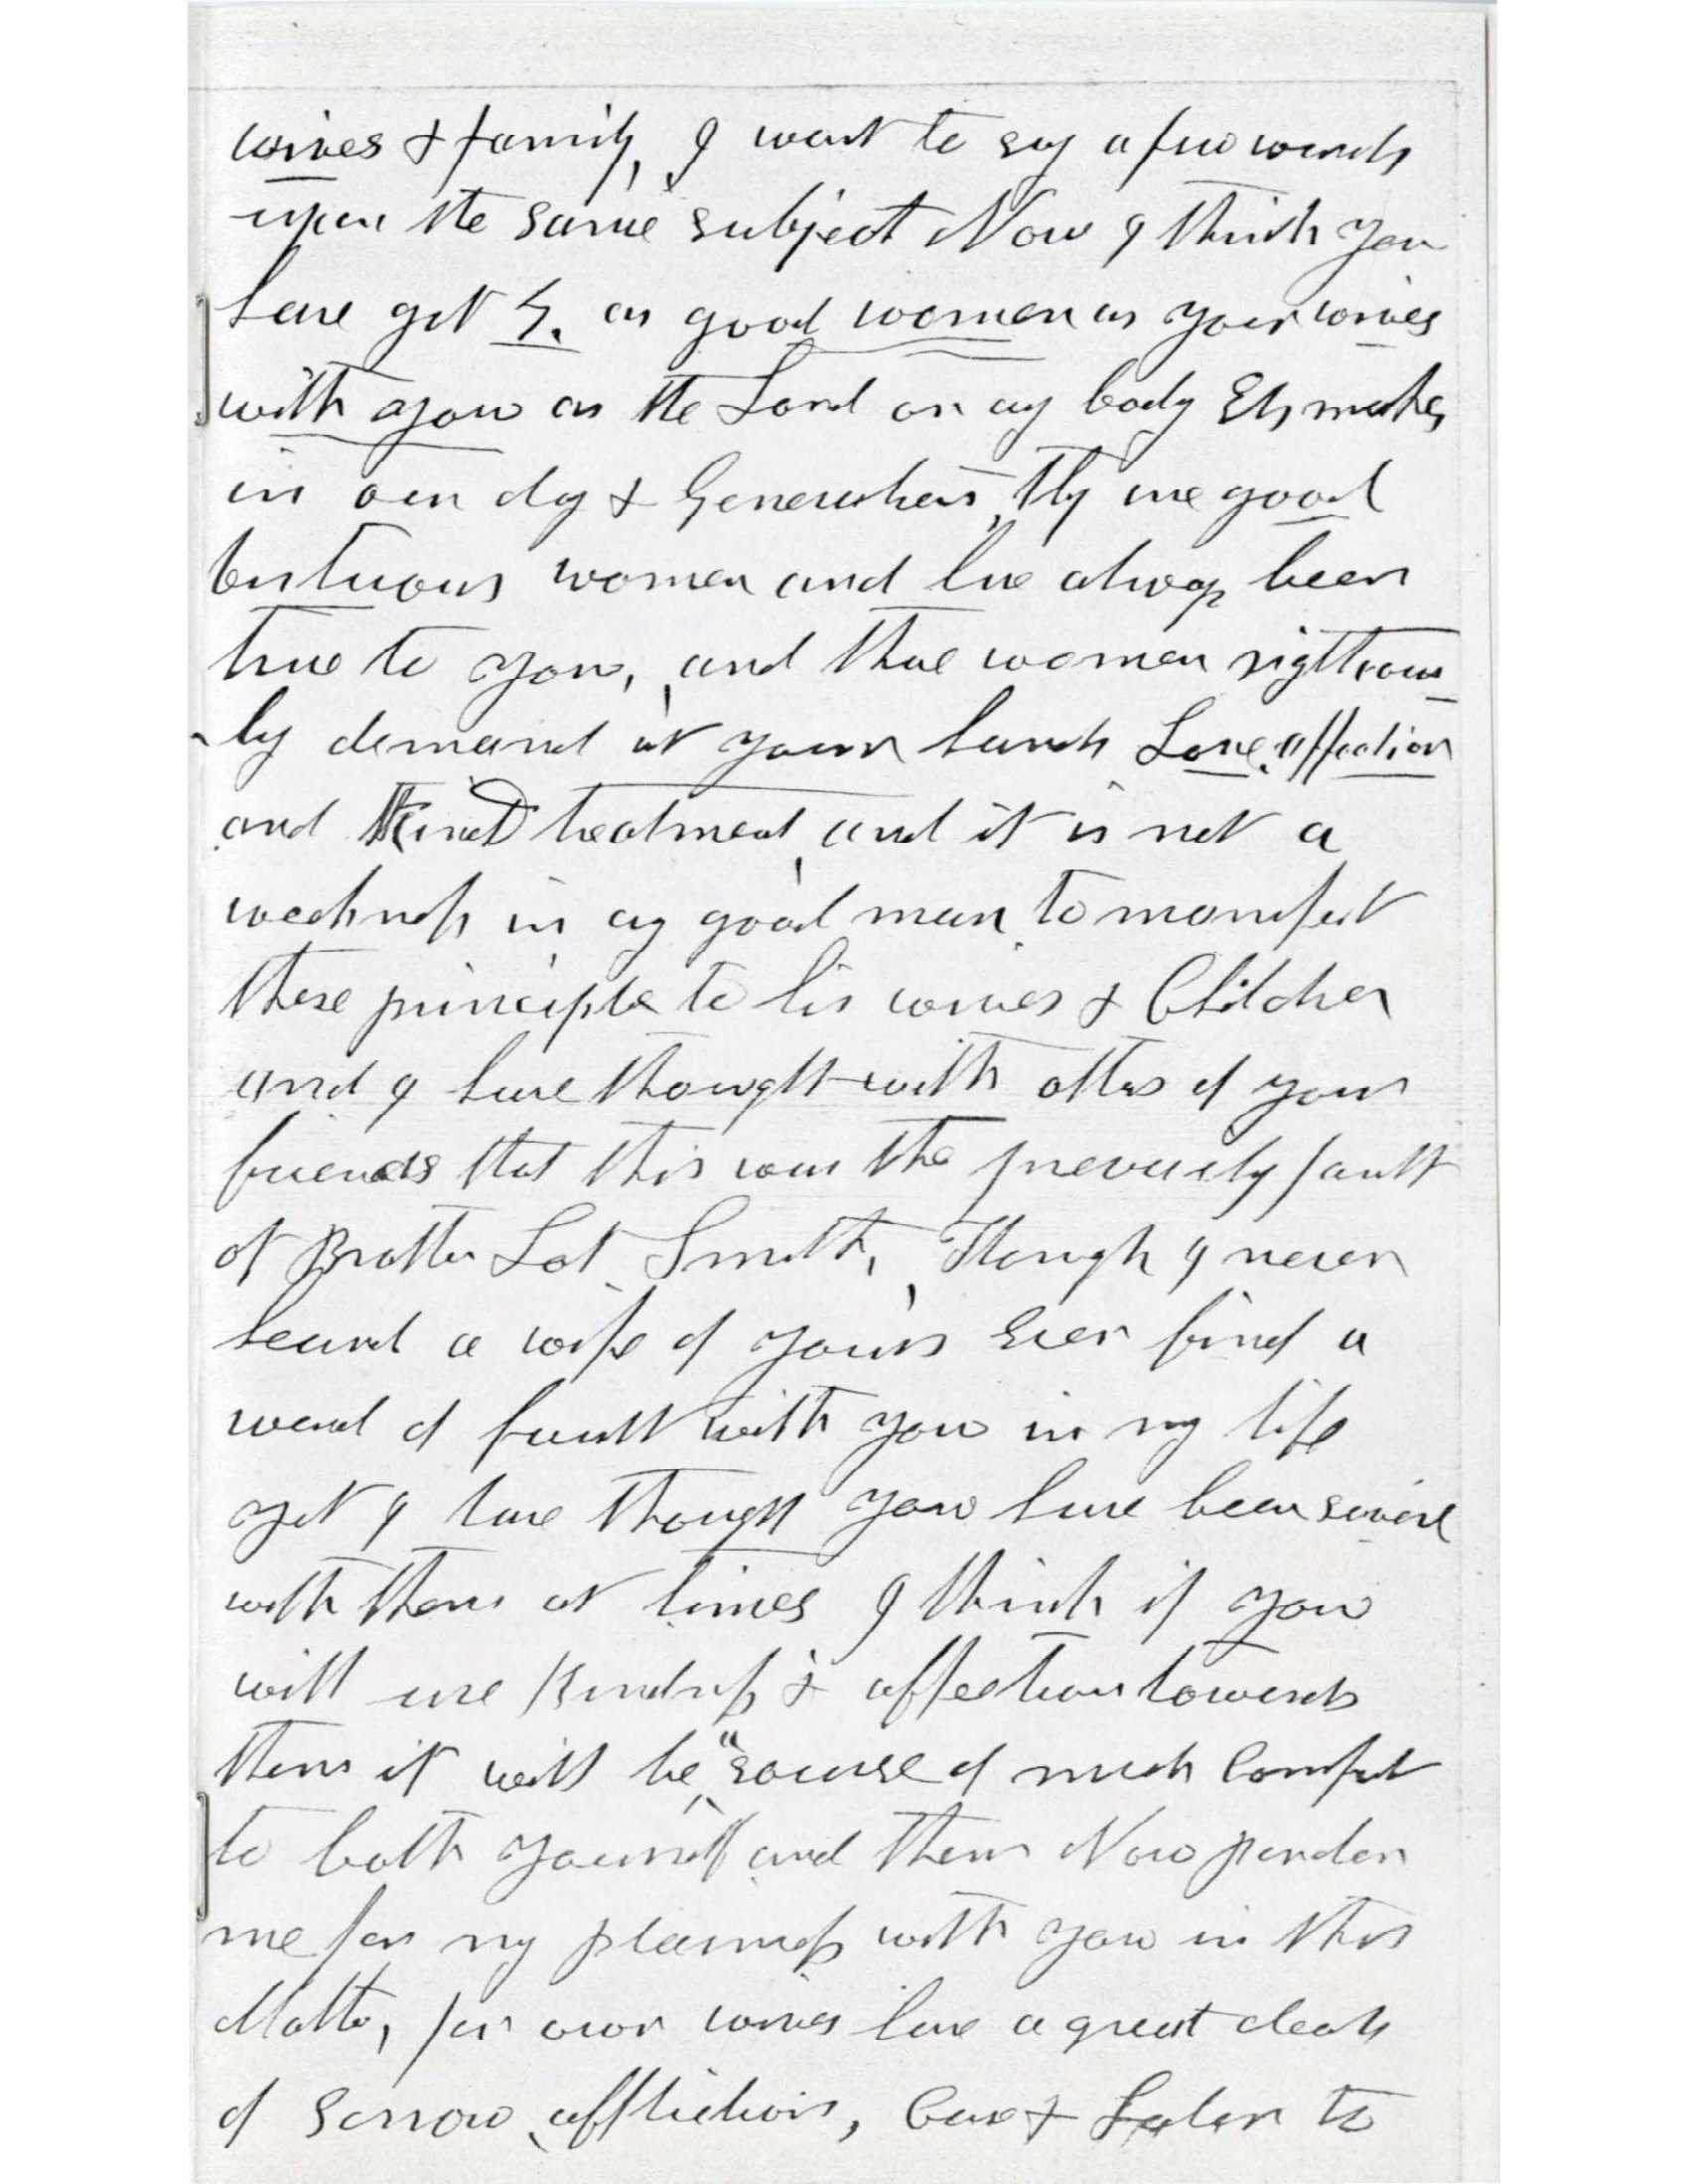 wives & family, I want to say a few words
upon the same subject Now I think you
have got as good women as your wives
with you as the Lord or any body Els makes
in our day & Generation, they are good
virtuous women and have always been
true to you, and those women righteous
-ly demand at your hands Love, affection
and Kind treatment, and it is not a
weakness in any good man to manifest
these principle to his wives & Children
and I have thought with others of your
friends that this was the fault
of Brother Lot Smith, Though I never
heard a wife of yours Ever find a
word of fault with you in my life
yet I have thought you have been severe
with them at times I think if you
will use Kindness & affection towards
them it will be "sourse of much Comfort
to both yourself and them Now pardon
me for my plainness with you in this
Matter, for our wives have a great deal
of Sorrow, affliction, Care & Labor to